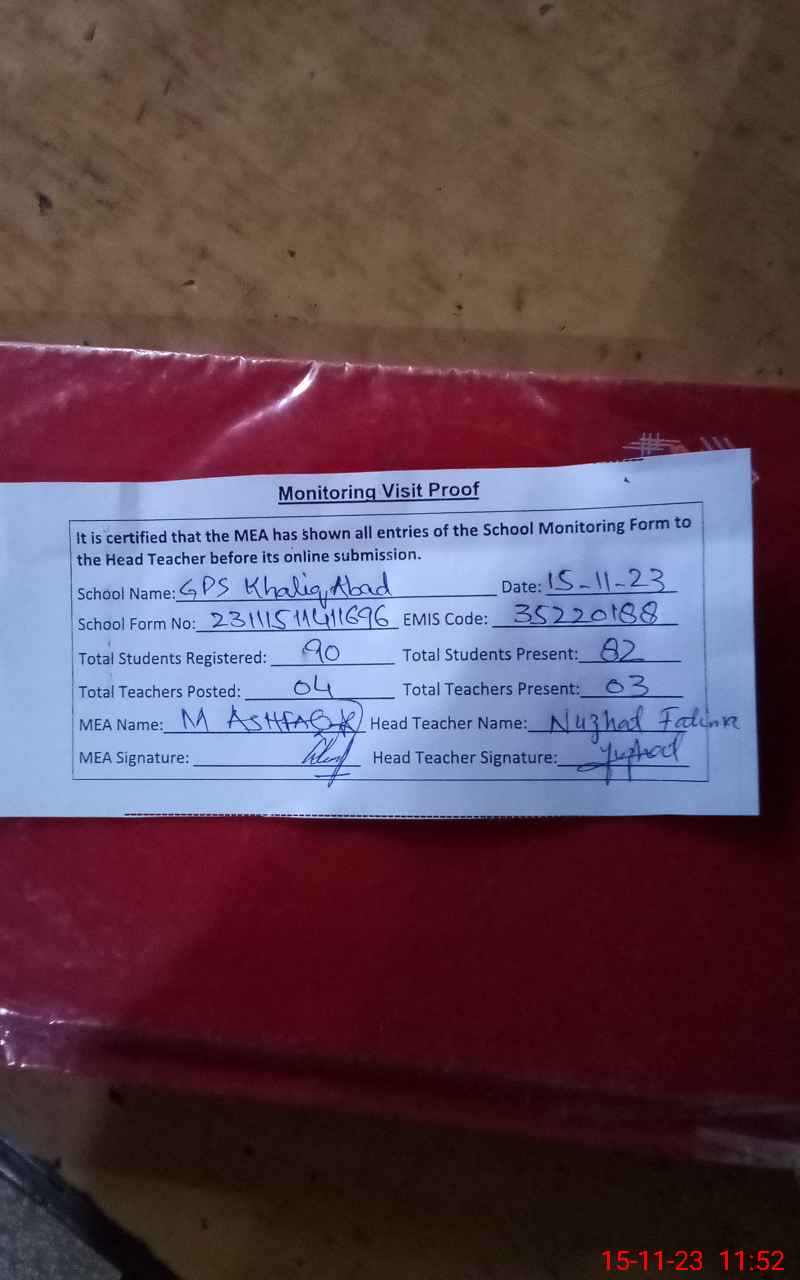 Monitoring Visit Proof
It is certified that the MEA has shown all entries of the School Monitoring Form to
the Head Teacher before its online submission.
School Name: GPS Khaliq Abad Date: 15-11-23
School Form No: 2311151411696 EMIS Code: 35220188
Total Students Registered: 90 Total Students Present: 82
Total Teachers Posted: 04 Total Teachers Present: 03
MEA Name: M ASHFAQ Head Teacher Name: Nuzhad Fatima
MEA Signature: Head Teacher Signature: Nuzhad
15-11-23 11:52